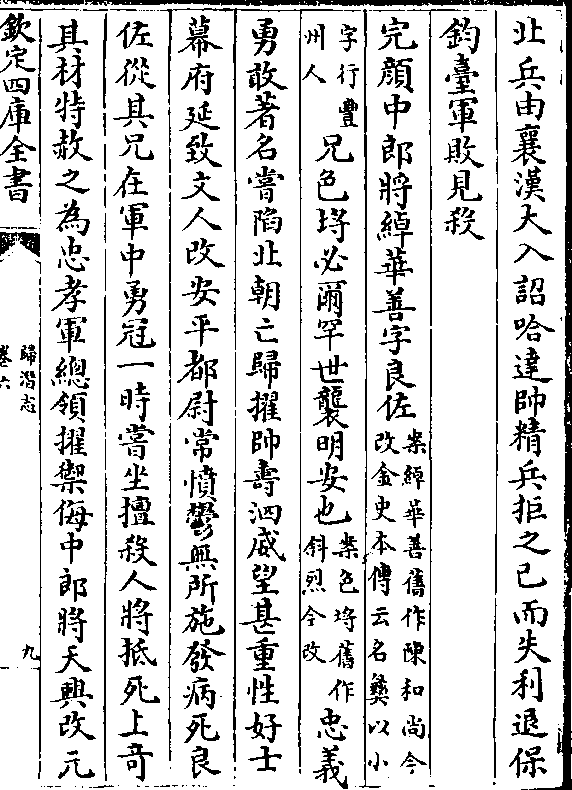 北兵由襄漢大入詔哈達帥精兵拒之已而失利退保
鈞臺軍敗見殺
完顏中郎將綽華善字良佐案綽華善舊作陳和尚今
改金史本傳云名彝以小
字行豐
州人兄色埒必爾罕世襲明安也案色埒舊作
斜烈今改忠義
勇敢著名嘗陷北朝亡歸擢帥壽泗威望甚重性好士
幕府延致文人改安平都尉常憤鬱無所施發病死良
佐從其兄在軍中勇冠一時嘗坐擅殺人將抵死上竒
其材特赦之為忠孝軍總領擢禦侮中郎將天興改元
欽定四庫全書
歸潛志
卷六
九